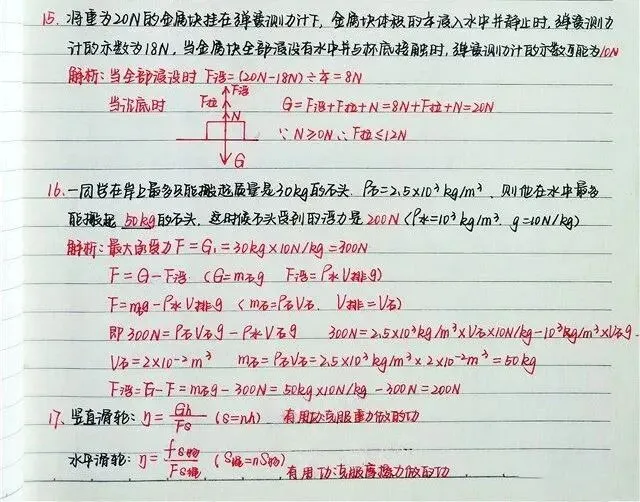 15. 将重为20N的金属块挂在弹簧测力计下,金属块体积的¼浸入水中并静止时,弹簧测力
计的示数为18N,当金属块全部浸没在水中并与杯底接触时,弹簧测力计的示数可能为10N
解析:当全部浸没时 F浮=(20N-18N)÷¼=8N
当沉底时 F拉 F浮 G=F浮+F拉+N=8N+F拉+N=20N
N ∵N≥0N∴F拉≤12N
G
16. 一同学在岸上最多只能搬起质量是30kg的石头.ρ石=2.5×10³kg/m³,则他在水中最多
能搬起 50kg的石头,这时候石头受到的浮力是 200N(ρ水=10³kg/m³. g=10N/kg)
解析:最大的举力F=G₁=30kg×10N/kg=300N
F=G-F浮 (G=m石g F浮=ρ水V排g)
F=mg-ρ水V排g (m石=ρ石V石. V排=V石)
即300N=ρ石V石g-ρ水V石g 300N=2.5×10³kg/m³×V石×10N/kg-10³kg/m³×V石g.
V石=2×10⁻²m³ m石=ρ石V石=2.5×10³kg/m³×2×10⁻²m³=50kg
F浮=G-F=m石g-300N=50kg×10N/kg-300N=200N
17. 竖直滑轮:η=Gh/Fs (s=nh) 有用功克服重力做的功
水平滑轮:η=fs物/Fs绳 (S绳=nS物) 有用功克服摩擦力做的功